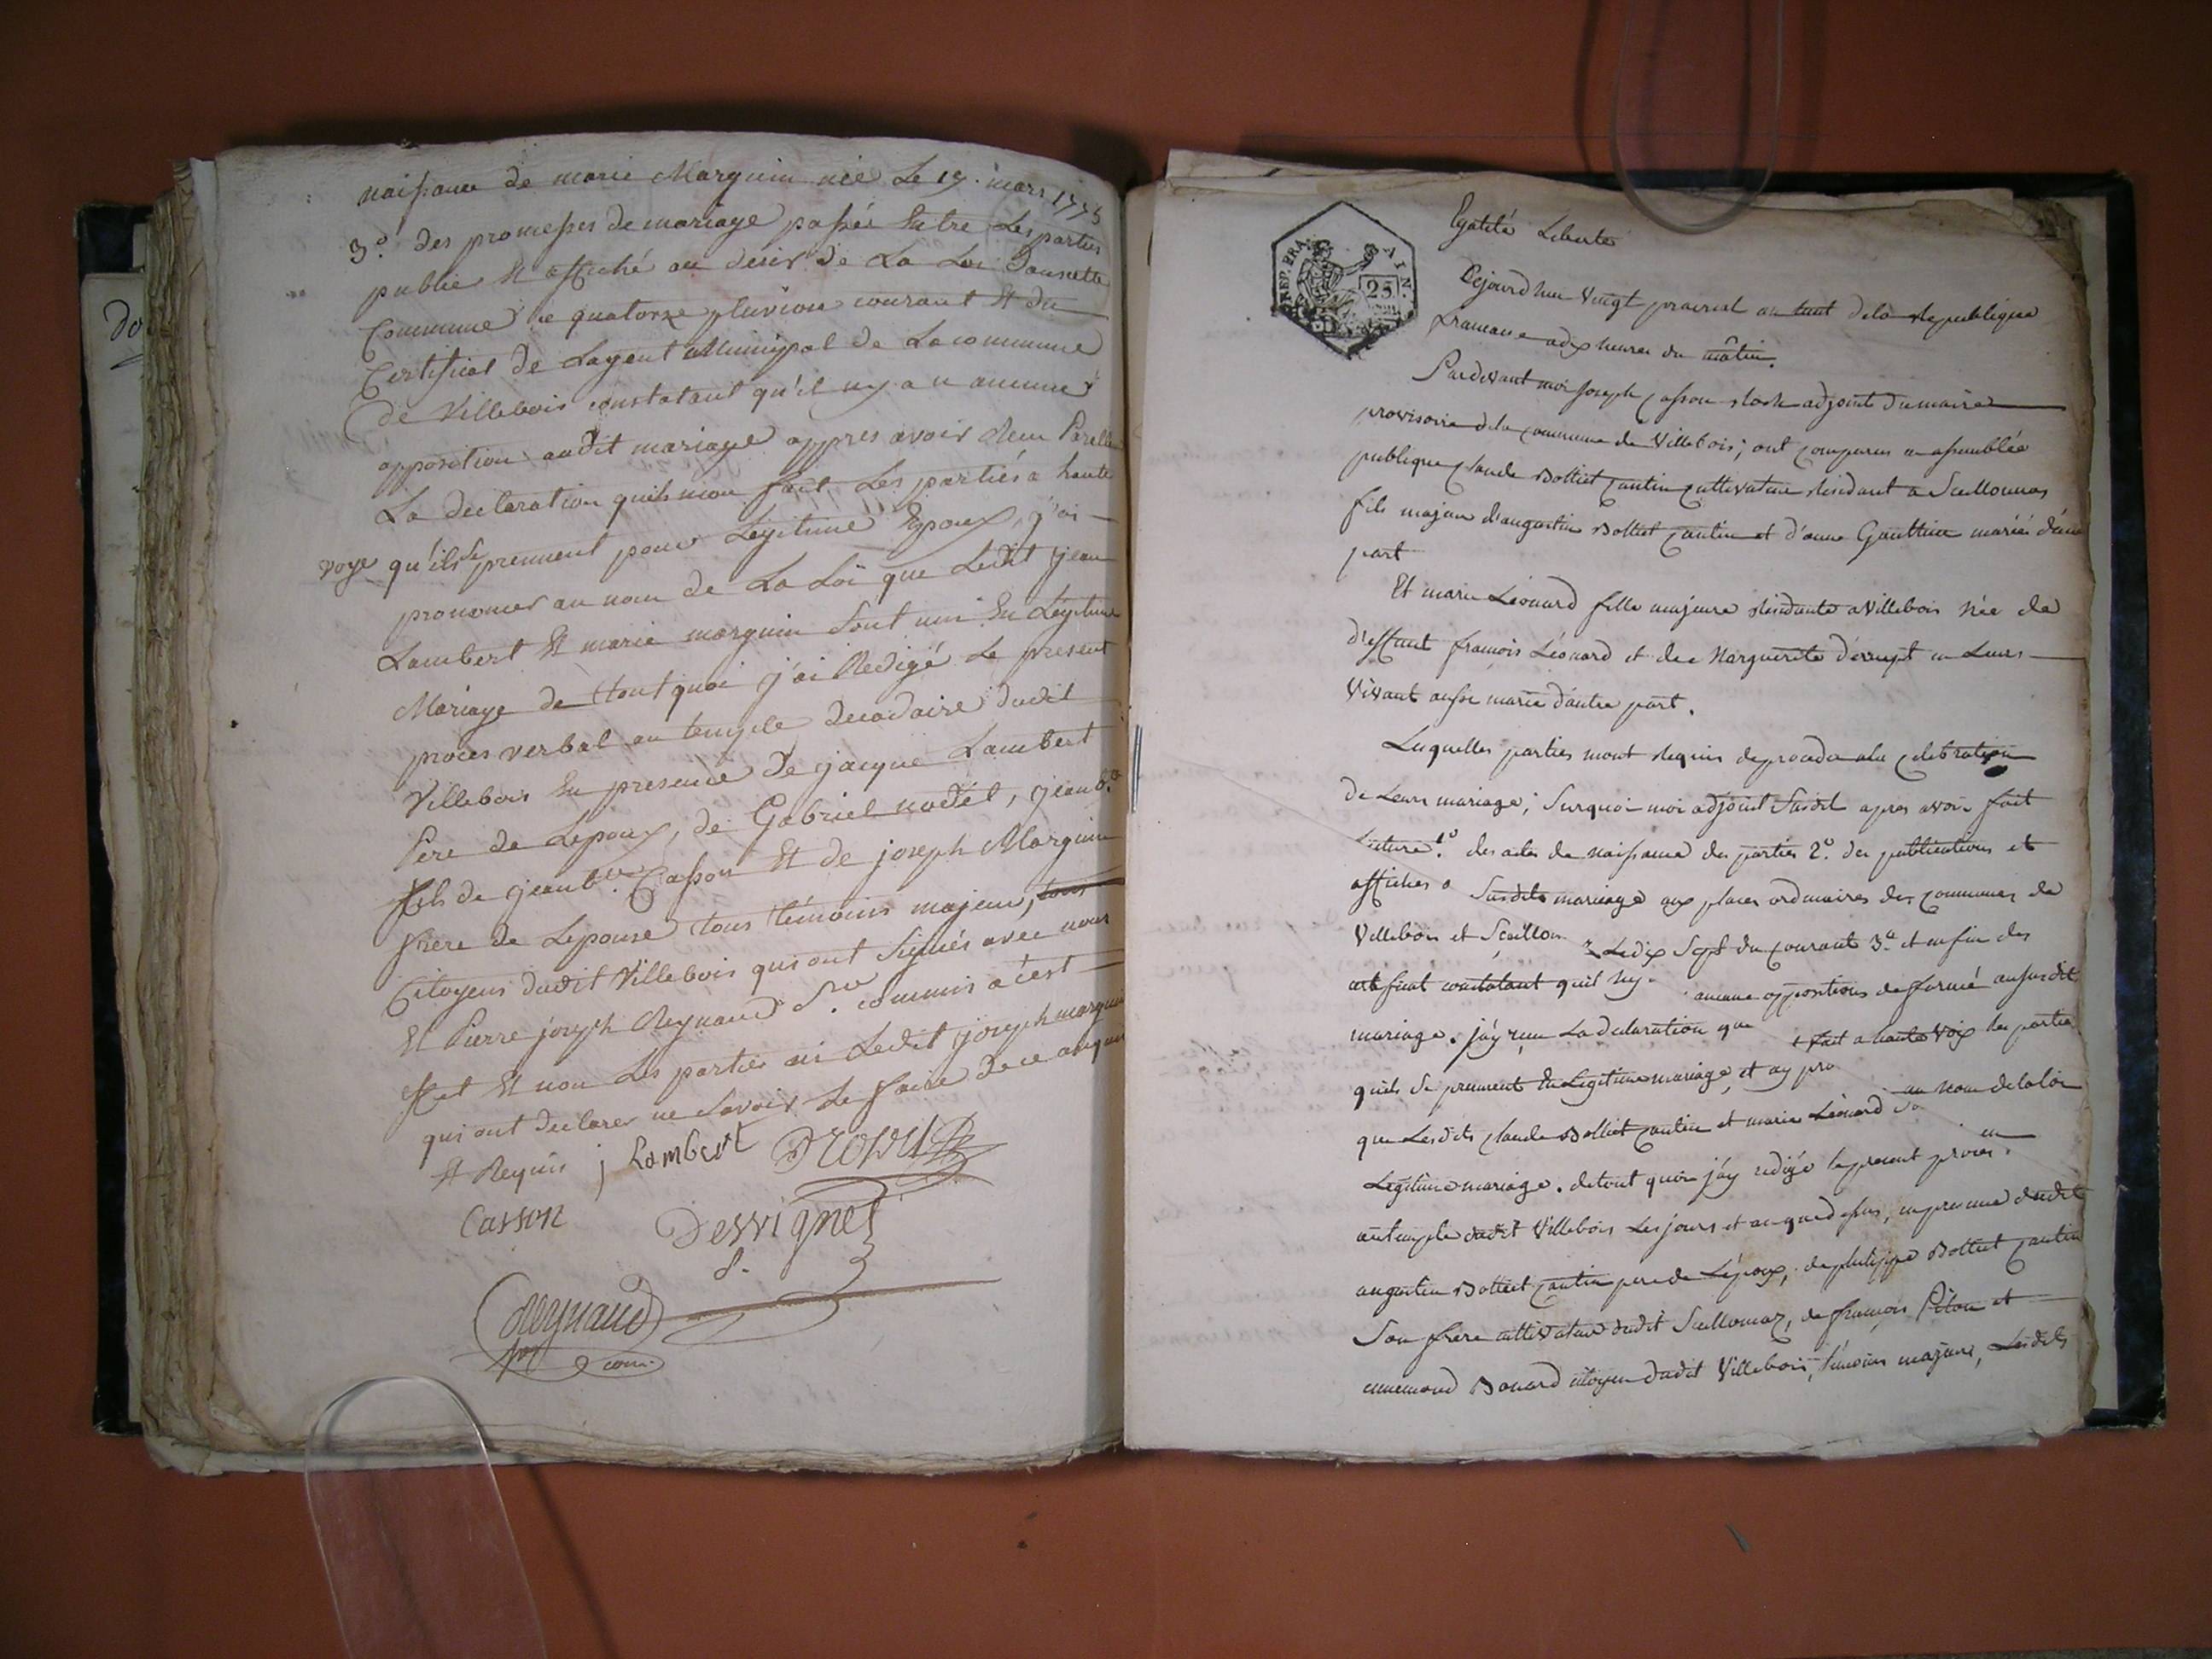 naissance de marie Marguin née Le 19. mars 1775
3.º des promesses de mariage passée Entre Les parties
publié Et affiché au desir de La Loi Dans cette
Commune le quatorze pluviose courant Et du
Certificat de Lagent Municipal de La commune
de Villebois constatant qu'il ny a u aucune
opposition audit mariage appres avoir Recu
La declaration quils mon fait Les partiés a haute
voye qu'ils se prennent pour Legitime Epoux, j'ai
prononcer au nom de La Loi que Ledit jean
Lambert Et marie marguin Sont uni En Légitime
Mariage de tout quoi j'ai Redigé Le present
proces verbal au temple decadaire dudit
Villebois En presence De jacque Lambert
Pere de Lepoux, de Gabriel nodet, jean b.te
fils de jean b.te Casson Et de joseph Marguin
frere de Lepouse tous témoins majeur, tous
Citoyens dudit Villebois qui ont Signés avec nous
Et Pierre joseph Reynaud S.re commis a cest
Et non Les parties ni Ledit joseph marguin
qui ont declarer ne Savoir Le faire de ce anquis
Et Requis j Lambert
Casson Dervignet
S.
Reynaud
com.
do
REP. FRA. AIN.
25
Egalité Liberté
Cejourdhui Vingt prairial an huit de la Republique
francaise a dix heures du mâtin.
Pardevant moi Joseph Casson adjoint du maire
provisoire de la commune de Villebois; ont comparus en assemblée
publique Claude Bolliet Cantin cultivateur Residant a Seillonnas
fils majeur d'augustin Bolliet Cantin et d'anne Gauttier mariés d'une
part
Et marie Léonard fille majeure Residante a Villebois Née de
deffunt françois Léonard et de Marguerite en Leurs
Vivant aussi mariés d'autre part.
Lesquelles parties mont Requis de proceder a la Celebration
de Leurs mariage; Surquoi moi adjoint Susdit apres avoir fait
Lecture 1.º des actes de Naissance des parties 2.º des publications et
affiches Susdits mariage aux places ordinaires des communes de
Villebois et Seillon Le dix Sept du courant 3.º et enfin des
certificat constatant quil Ny aucune oppositions de formé au susdit
mariage. j'ay reçu La declaration que fait a haute Voix les parties
quils Se prennent En Legitime mariage, et ay pro au nom de la loi
que Lesdits Claude Bolliet Cantin et marie Léonard So en
Legitime mariage. de tout quoi j'ay redigé le present proces.
au temple dudit Villebois Les jours et an que dessus, en presence dudit
augustin Bolliet Cantin pere de Lépoux, de philippe Bolliet Cantin
Son frere cultivateur dudit Seillonnaz, de françois Pilon et
ennemond Bonard citoyen dudit Villebois, témoins majeurs, Lesdits